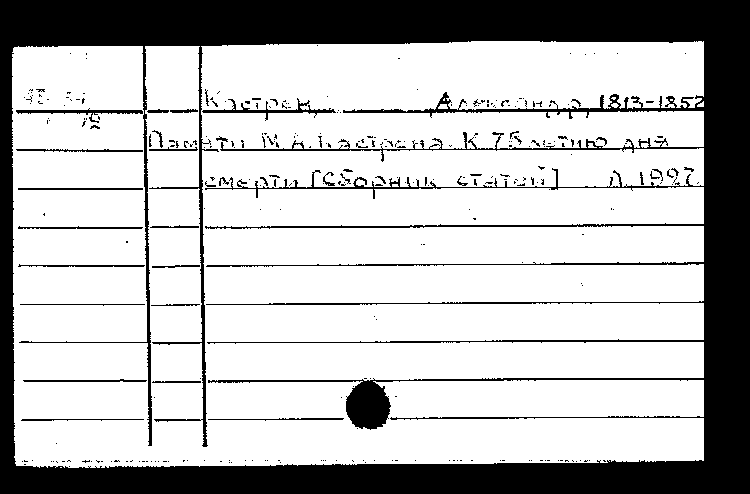 Кастрен, Александр, 1813-1852
Памяти М.А. Кастрена. К 75 летию дня
смерти [Сборник статей] Л, 1927.